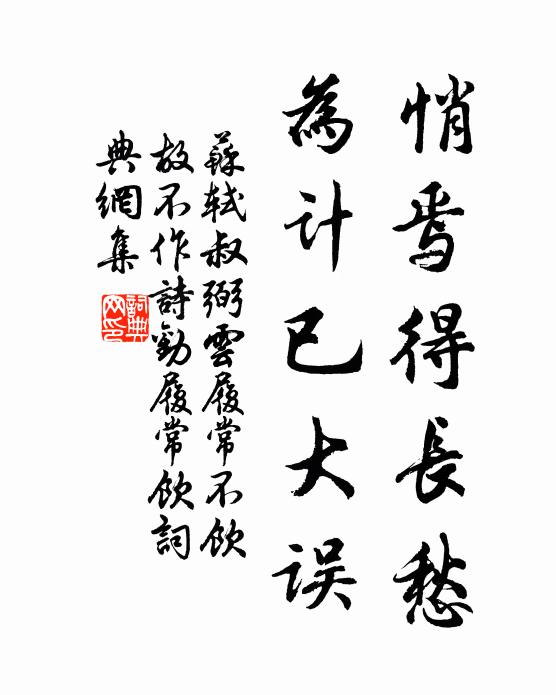 悄焉得長愁
為计已大误
蘇軾叔弼雲履常不飲
故不作詩勸履常飲詞
典網集
詞典
网印